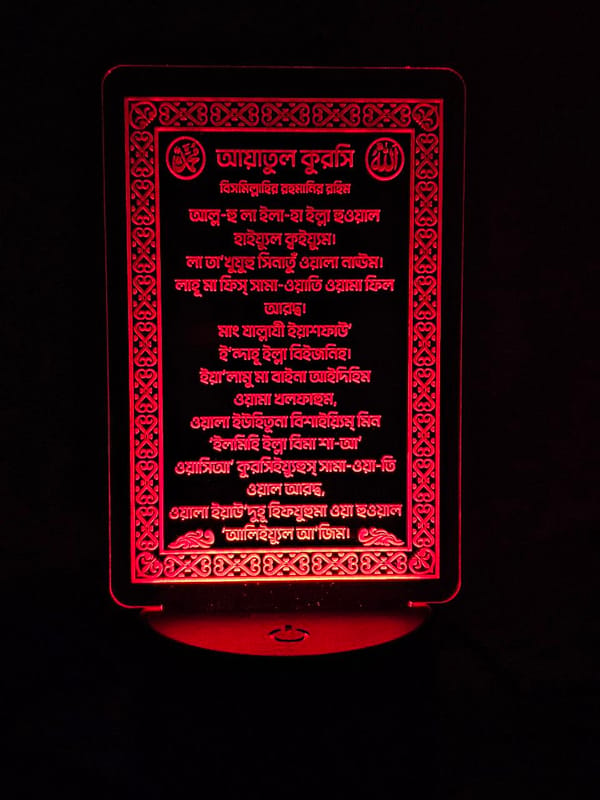 محمد آয়াতুল কুরসি الله
বিসমিল্লাহির রহমানির রহিম
আল্ল-হু লা ইলা-হা ইল্লা হুওয়াল
হাইয়্যুল ক্বইয়্যুম।
লা তা'খুযুহু সিনাতুঁ ওয়ালা নাঊম।
লাহূ মা ফিস্ সামা-ওয়াতি ওয়ামা ফিল
আরদ্ব।
মাং যাল্লাযী ইয়াশফাউ'
ই'ন্দাহূ ইল্লা বিইজনিহ।
ইয়া'লামু মা বাইনা আইদিহিম
ওয়ামা খলফাহুম,
ওয়ালা ইউহিতূনা বিশাইয়্যিম্ মিন
'ইলমিহি ইল্লা বিমা শা-আ'
ওয়াসিআ' কুরসিইয়্যুহুস্ সামা-ওয়া-তি
ওয়াল আরদ্ব,
ওয়ালা ইয়াউ'দুহূ হিফযুহুমা ওয়া হুওয়াল
'আলিইয়্যুল আ'জিম।